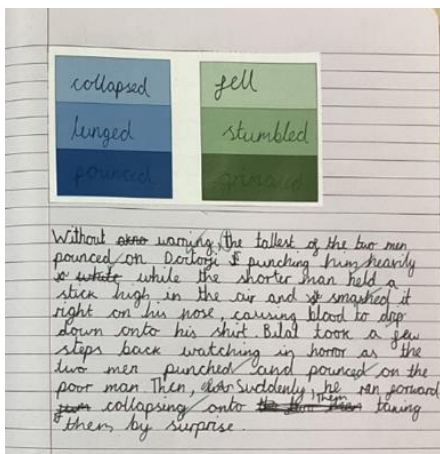 collapsed
lunged
pounced
fell
stumbled
grimaced
Without warning, the tallest of the two men
pounced on punching him heavily
while the shorter man held a
stick high in the air and smashed it
right on his nose, causing blood to drip
down onto his shirt. Bilal took a few
steps back watching in horror as the
two men punched and pounced on the
poor man. Then, suddenly, he ran forward
collapsing onto them taking
them by surprise.